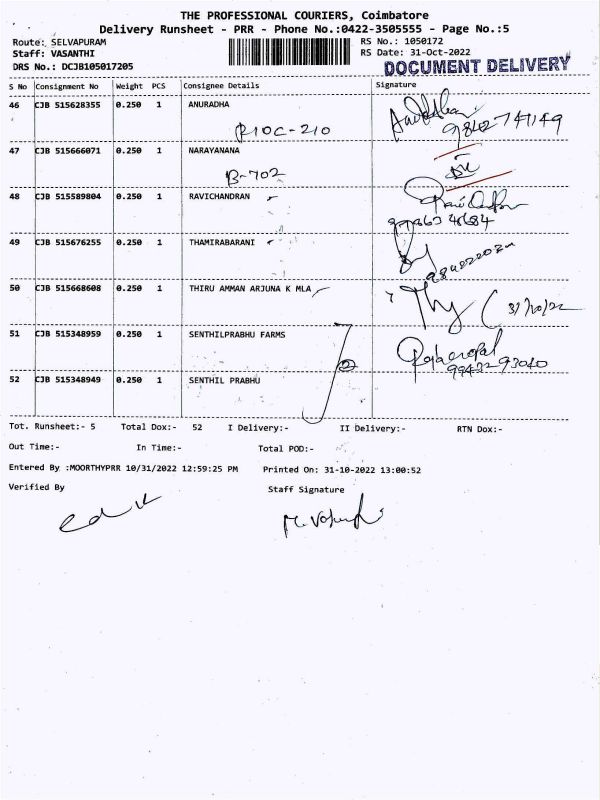 THE PROFESSIONAL COURIERS, Coimbatore
Delivery Runsheet - PRR - Phone No.:0422-3505555 - Page No.:5
Route: SELVAPURAM RS No.: 1050172
Staff: VASANTHI RS Date: 31-Oct-2022
DRS No.: DCJB105017205 DOCUMENT DELIVERY
S No Consignment No Weight PCS Consignee Details Signature
46 CJB 515628355 0.250 1 ANURADHA
R10C-210
47 CJB 515666071 0.250 1 NARAYANANA
B-702
48 CJB 515589804 0.250 1 RAVICHANDRAN
49 CJB 515676255 0.250 1 THAMIRABARANI
50 CJB 515668608 0.250 1 THIRU AMMAN ARJUNA K MLA
31/10/22
51 CJB 515348959 0.250 1 SENTHILPRABHU FARMS
2
99432 93040
52 CJB 515348949 0.250 1 SENTHIL PRABHU
Tot. Runsheet:- 5 Total Dox:- 52 I Delivery:- II Delivery:- RTN Dox:-
Out Time:- In Time:- Total POD:-
Entered By :MOORTHYPRR 10/31/2022 12:59:25 PM Printed On: 31-10-2022 13:00:52
Verified By Staff Signature